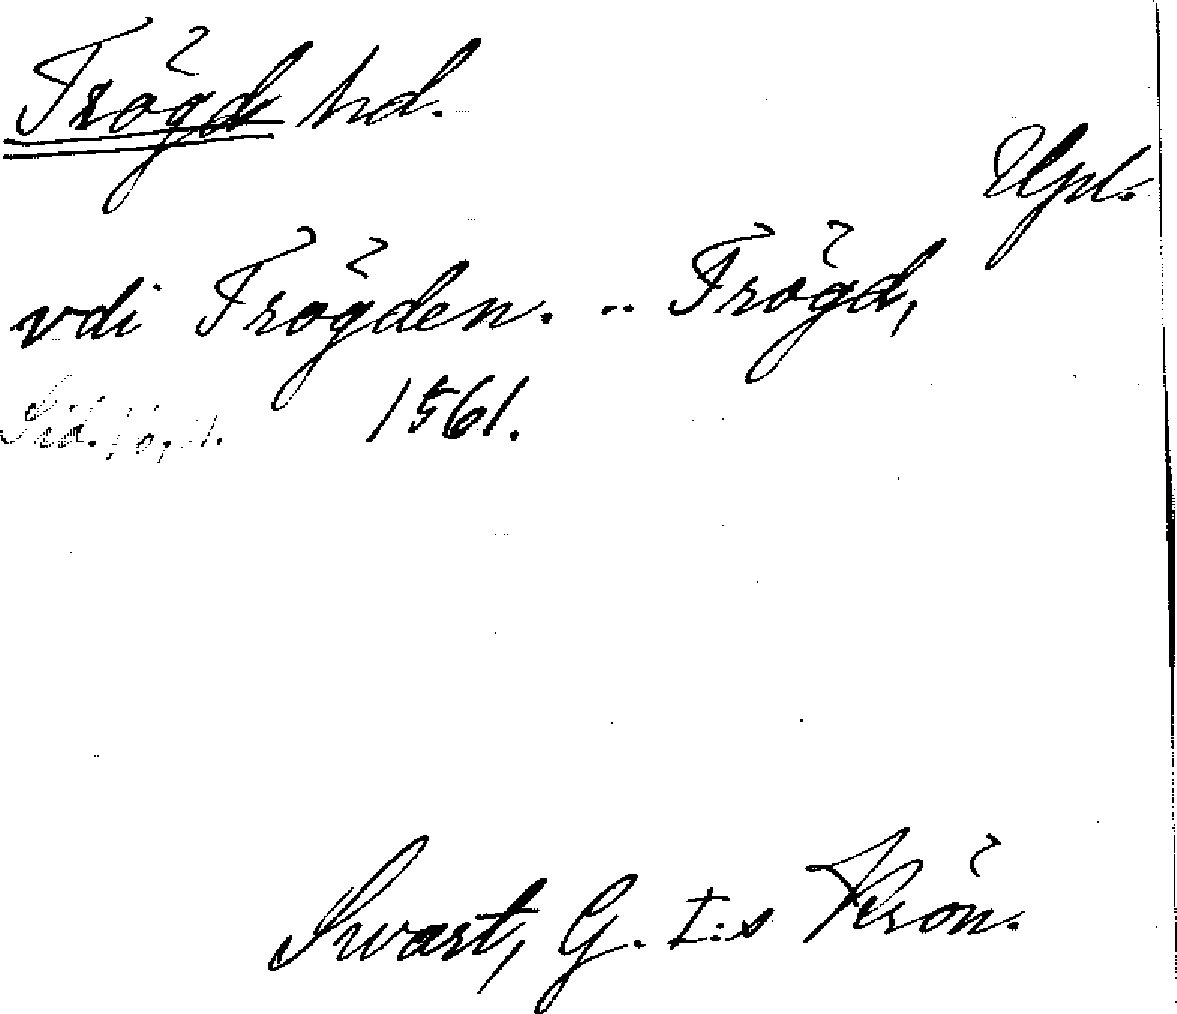 Trögds hd.
Upl.
vdi Trögden. .. Trögd,
1561.
Swart, G. I:s Krön.